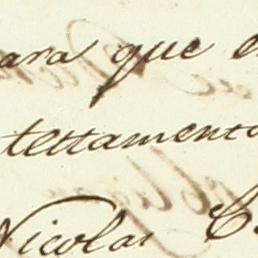 ara que e
testamento
Nicolas C